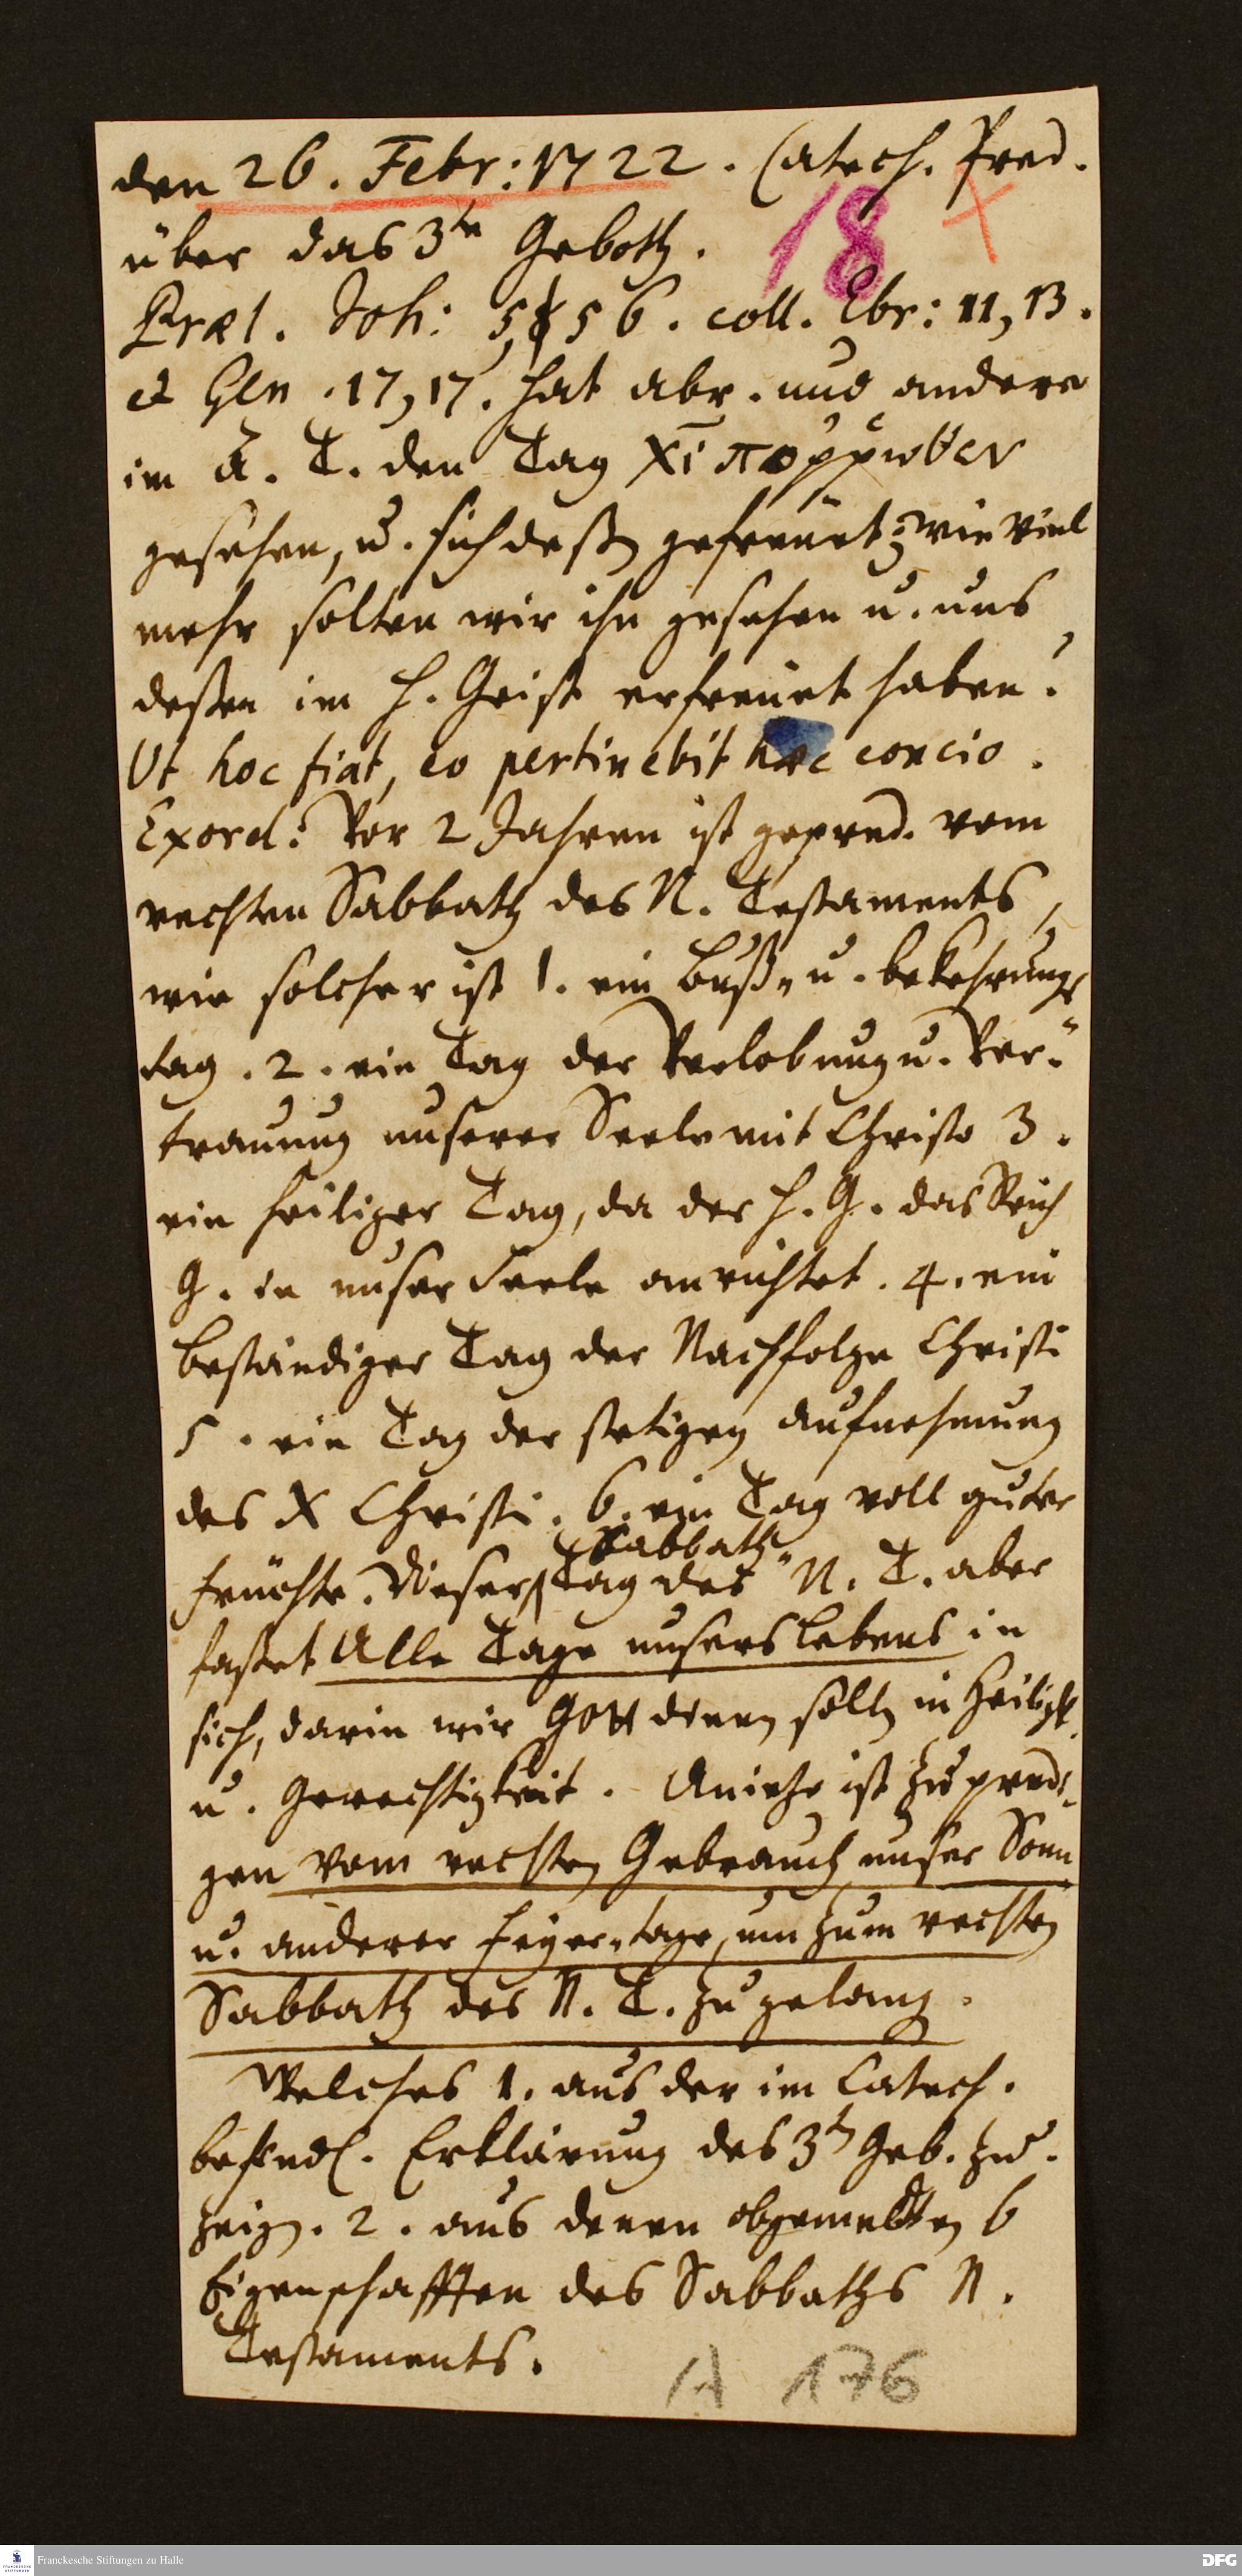 den 26. Febr: 1722. Catech. Pred.
über das 3te Geboth.
18
Præl. Joh: 5, 56. coll. Ebr: 11, 13.
et Gen. 17, 17. hat Abr. und andere
im A. T. den Tag Xi πόρρωθεν
gesehen, u. sich deßen gefreuet; wie viel
mehr solten wir ihn gesehen u. uns
deßen im H. Geist erfreuet haben!
Ut hoc fiat, eo pertinebit hæc concio.
Exord: Vor 2 Jahren ist gepred. vom
rechten Sabbath des N. Testaments,
wie solcher ist 1. ein Buß- u. bekehrungs
tag. 2. ein Tag der Verlobung u. Ver-
trauung unserer Seele mit Christo 3.
ein heiliger Tag, da der H. G. das Reich
G. in unser Seele anrichtet. 4. ein
beständiger Tag der Nachfolge Christi
5. ein Tag der stetigen aufnehmung
des X Christi. 6. ein Tag voll guter
Früchte. Dieser Sabbath-Tag des N. T. aber
faßet Alle Tage unsers Lebens in
sich, darin wir Gott dienen sollen in Heiligk.
u. Gerechtigkeit. Anietzo ist zu predi-
gen vom rechten Gebrauch unser Sonn
u. anderer Feyer-tage, um zum rechten
Sabbath des N. T. zu gelangen.
Welches 1. aus der im Catech.
befindl. Erklärung des 3ten Geb. zu
zeigen. 2. aus denen obgemeldten 6
Eigenschafften des Sabbaths N.
Testaments.
A 176
Franckesche Stiftungen zu Halle
DFG